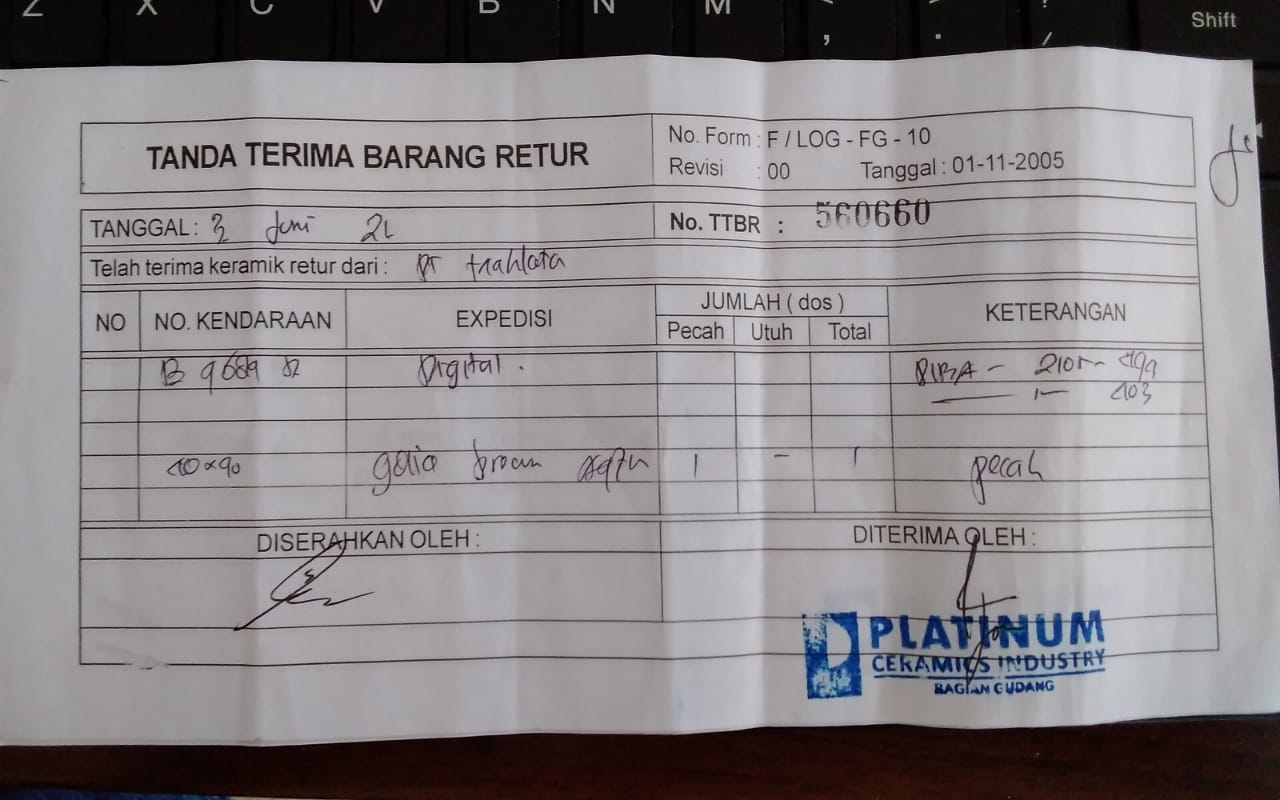 Z X C V B N M , . / ?
Shift
TANDA TERIMA BARANG RETUR
No. Form : F / LOG - FG - 10
Revisi : 00 Tanggal : 01-11-2005
TANGGAL : 3 Juni 21
No. TTBR : 560660
Telah terima keramik retur dari : PT
NO NO. KENDARAAN EXPEDISI JUMLAH ( dos ) KETERANGAN
Pecah Utuh Total
B 9689 Digital .
40x40 1 - 1 pecah
DISERAHKAN OLEH : DITERIMA OLEH :
PLATINUM
CERAMICS INDUSTRY
BAGIAN GUDANG